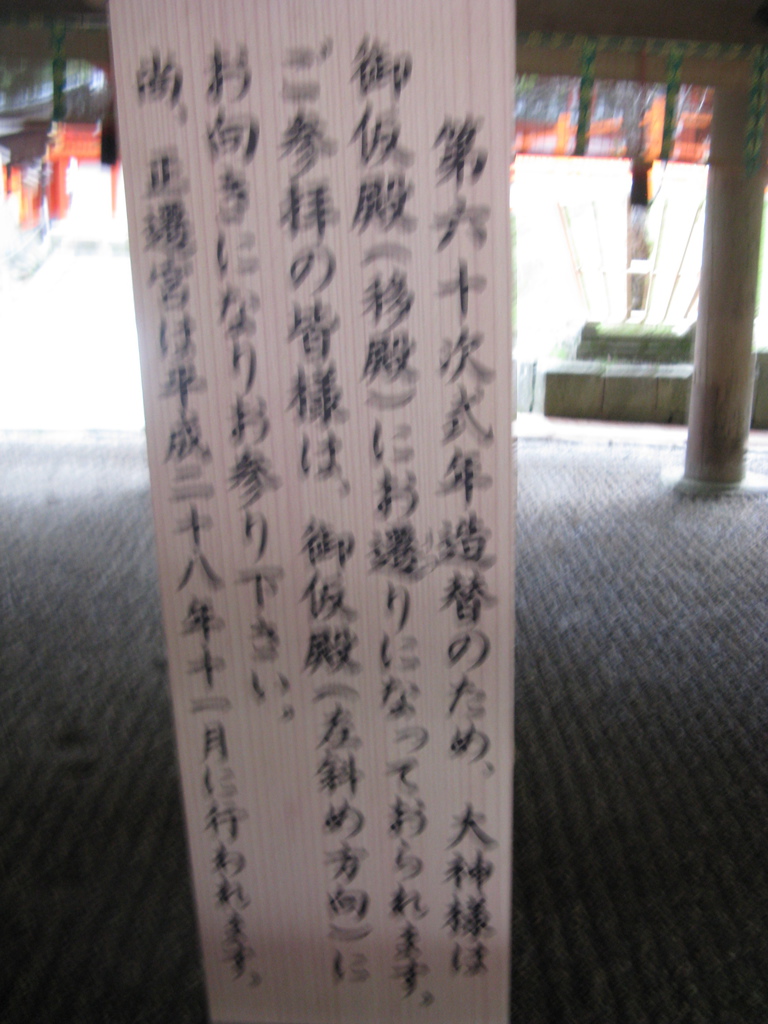 第六十次式年造替のため、大神様は
御仮殿(移殿)にお遷りになっておられます。
ご参拝の皆様は、御仮殿(左斜め方向)に
お向きになりお参り下さい。
尚、正遷宮は平成二十八年十一月に行われます。